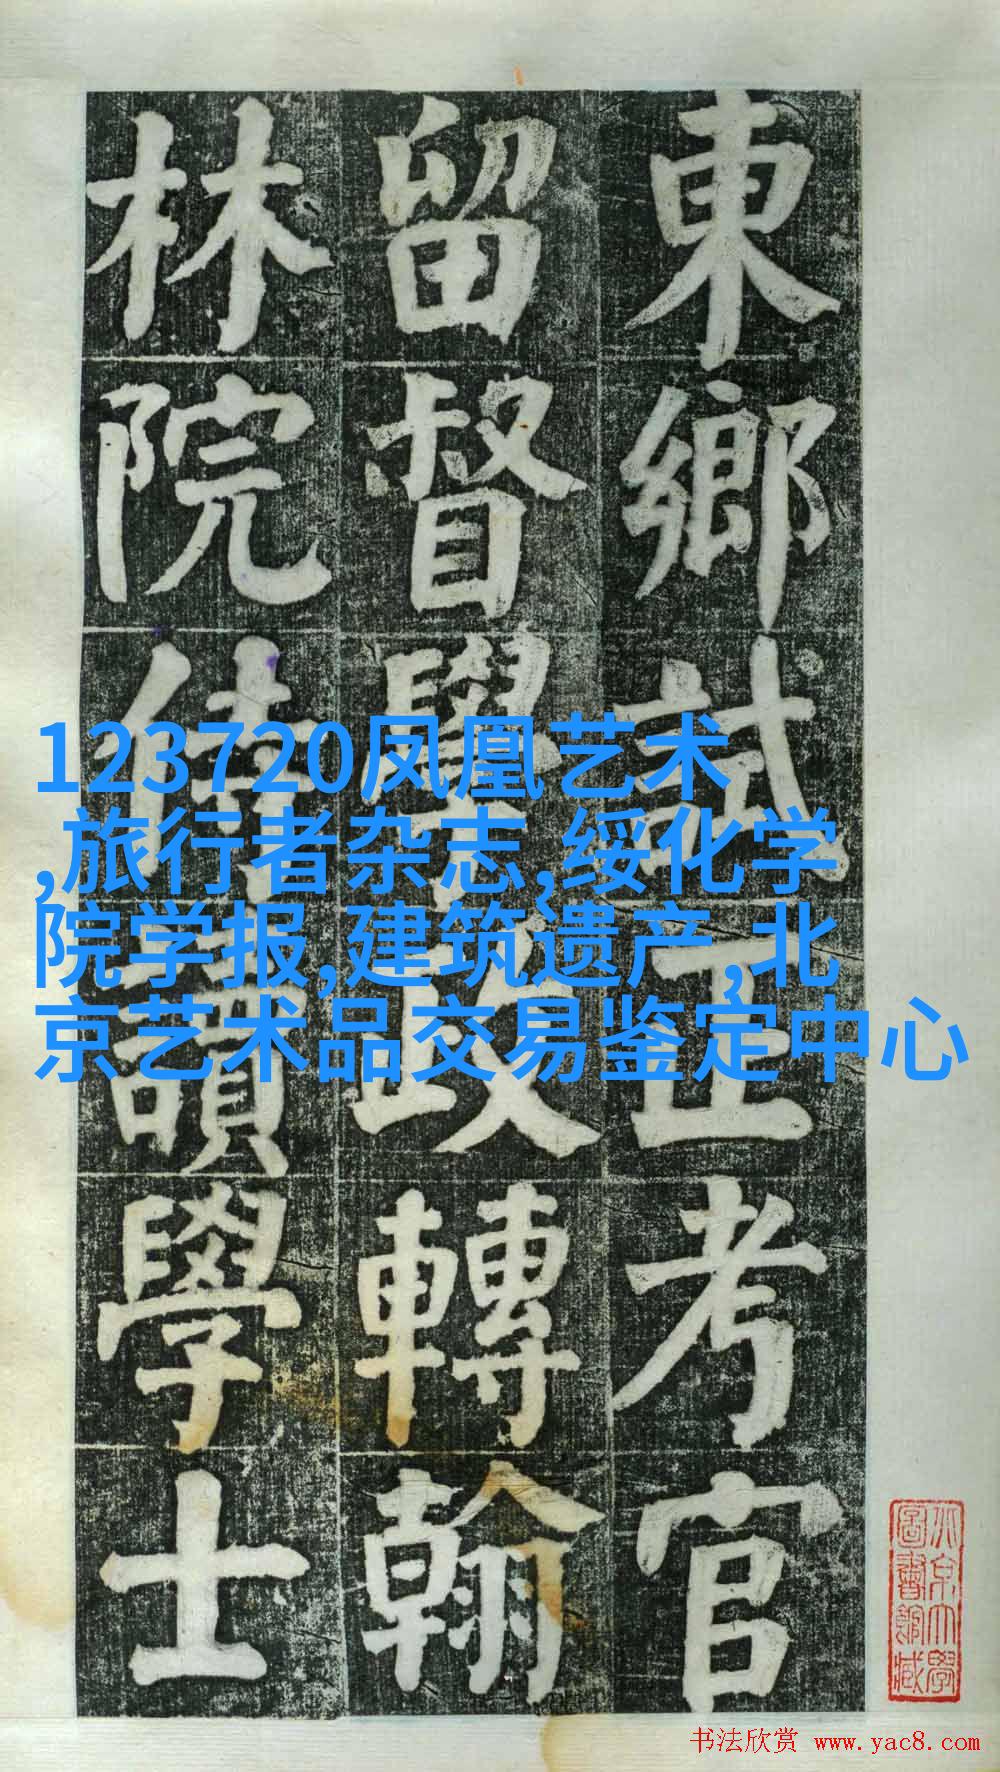 東鄉試正考官
留督學政轉翰
林院侍讀學士
123720凤凰艺术
,旅行者杂志,绥化学
院学报,建筑遗产,北
京艺术品交易鉴定中心
北京大學
圖書館藏
书法欣赏 www.yac8.com